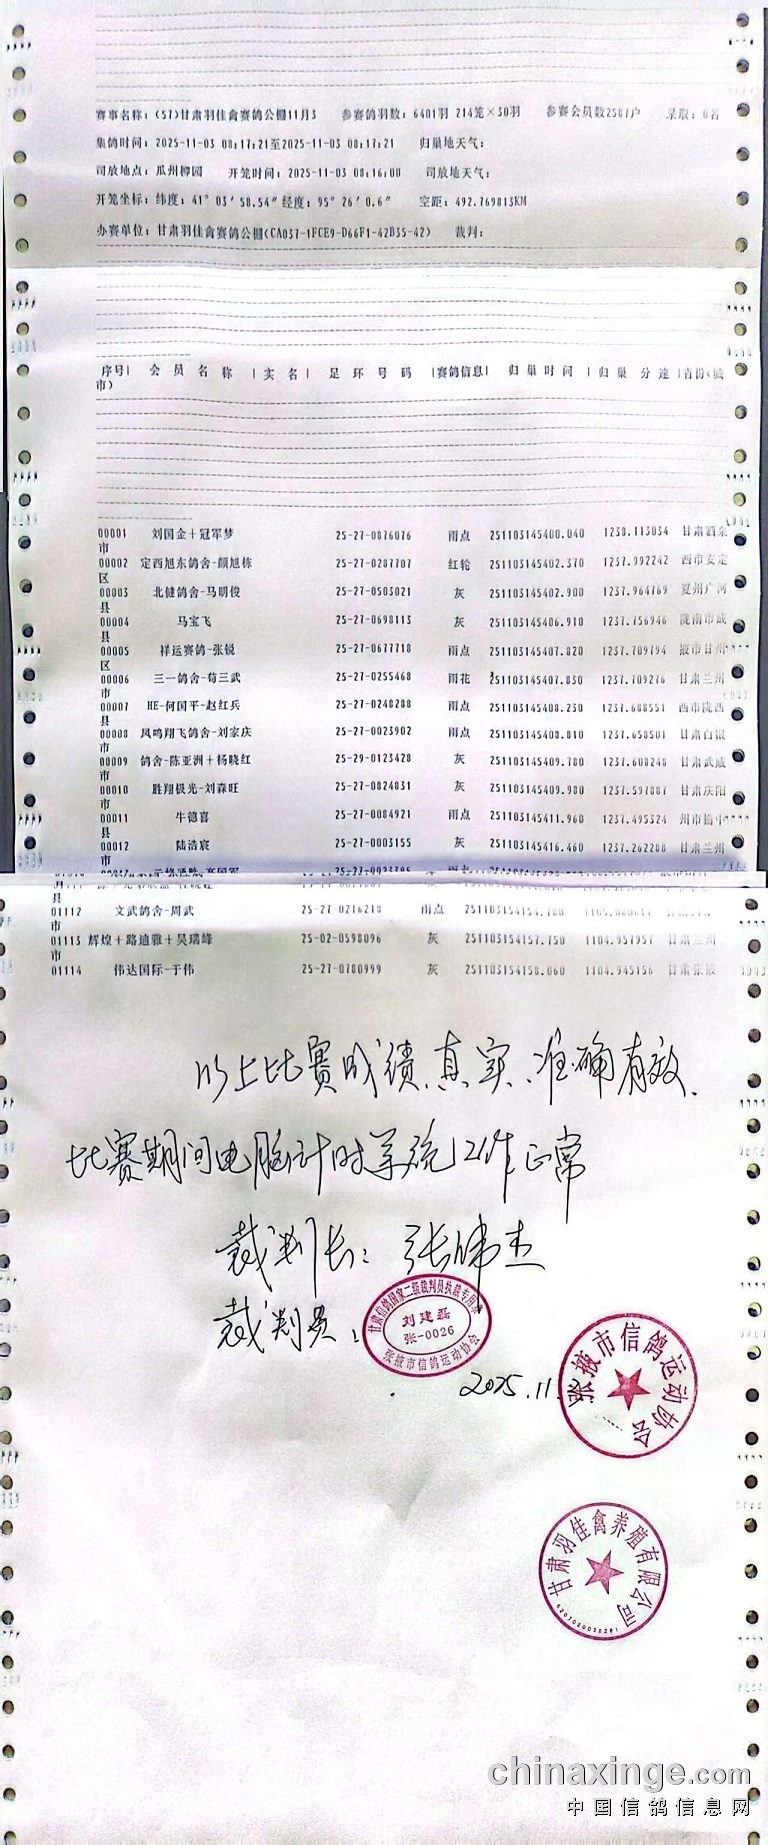 赛事名称：(57)甘肃羽佳禽赛鸽公棚11月3 参赛鸽羽数：6401羽 214笼×30羽 参赛会员数2587户 录取：0名
集鸽时间：2025-11-03 08:17:21至2025-11-03 08:17:21 归巢地天气：
司放地点：瓜州柳园 开笼时间：2025-11-03 08:16:00 司放地天气：
开笼坐标：纬度：41°03′58.54″经度：95°26′0.6″ 空距：492.769813KM
办赛单位：甘肃羽佳禽赛鸽公棚(CA037-1FCE9-D66F1-42B35-42) 裁判：
序号| 会员名称 |实名| 足环号码 |赛鸽信息| 归巢时间 |归巢分速|省份(城
市)
00001 刘国金＋冠军梦 25-27-0876076 雨点 251103145400.040 1238.113034 甘肃酒泉
市
00002 定西旭东鸽舍-颜旭栋 25-27-0287707 红轮 251103145402.370 1237.992242 西市安定
区
00003 北健鸽舍-马明俊 25-27-0503021 灰 251103145402.900 1237.964769 夏州广河
县
00004 马宝飞 25-27-0698113 灰 251103145406.910 1237.756946 陇南市成
县
00005 祥运赛鸽-张锐 25-27-0677718 雨点 251103145407.820 1237.709794 掖市甘州
区
00006 三一鸽舍-苟三武 25-27-0255468 雨花 251103145407.830 1237.709276 甘肃兰州
市
00007 HE-何国平-赵红兵 25-27-0248288 雨点 251103145408.230 1237.688551 西市陇西
县
00008 凤鸣翔飞鸽舍-刘家庆 25-27-0023902 雨点 251103145408.810 1237.658501 甘肃白银
市
00009 鸽舍-陈亚洲＋杨晓红 25-29-0123428 灰 251103145409.780 1237.608248 甘肃武威
市
00010 胜翔极光-刘森旺 25-27-0824831 灰 251103145409.980 1237.597887 甘肃庆阳
市
00011 牛德喜 25-27-0084921 雨点 251103145411.960 1237.495324 州市榆中
县
00012 陆浩宸 25-27-0003155 灰 251103145416.460 1237.262288 甘肃兰州
市
县
01112 文武鸽舍-周武 25-27-0216218 雨点 251103154154.780
市
01113 辉煌＋路迪雅＋吴瑞峰 25-02-0598096 灰 251103154157.750 1104.957957 甘肃兰州
市
01114 伟达国际-于伟 25-27-0780999 灰 251103154158.060 1104.945156 甘肃张掖
以上比赛成绩、真实、准确有效.
比赛期间电脑计时系统工作正常
裁判长：张伟杰
裁判员：
甘肃信鸽国家二级裁判员执裁专用章
刘建磊
张-0026
张掖市信鸽运动协会
2025.11.
张掖市信鸽运动协会
甘肃羽佳禽养殖有限公司
chinaxinge.com
中国信鸽信息网